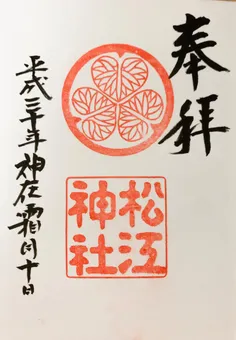 奉拝
松江
神社
平成三十年神在霜月十日